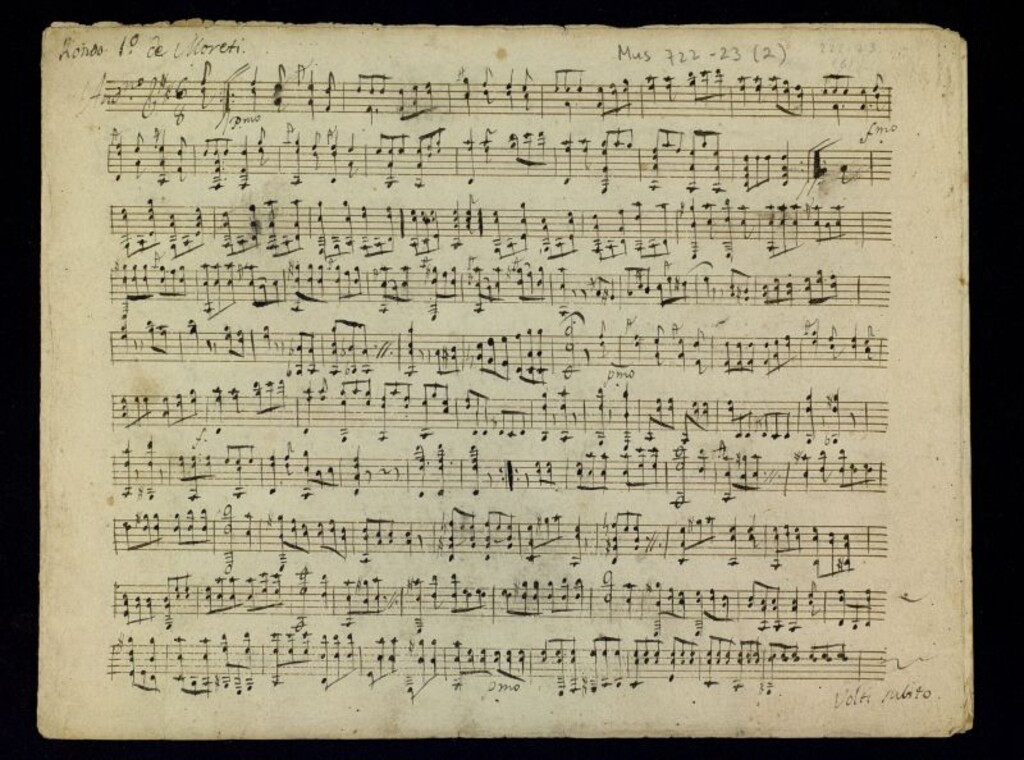 Rondo. 1º de Moreti.
Mus 722-23 (2)
pmo
fmo
pmo
f.
pmo
Volti subito.